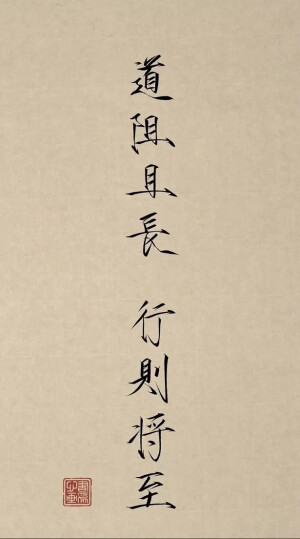 道阻且長 行則将至